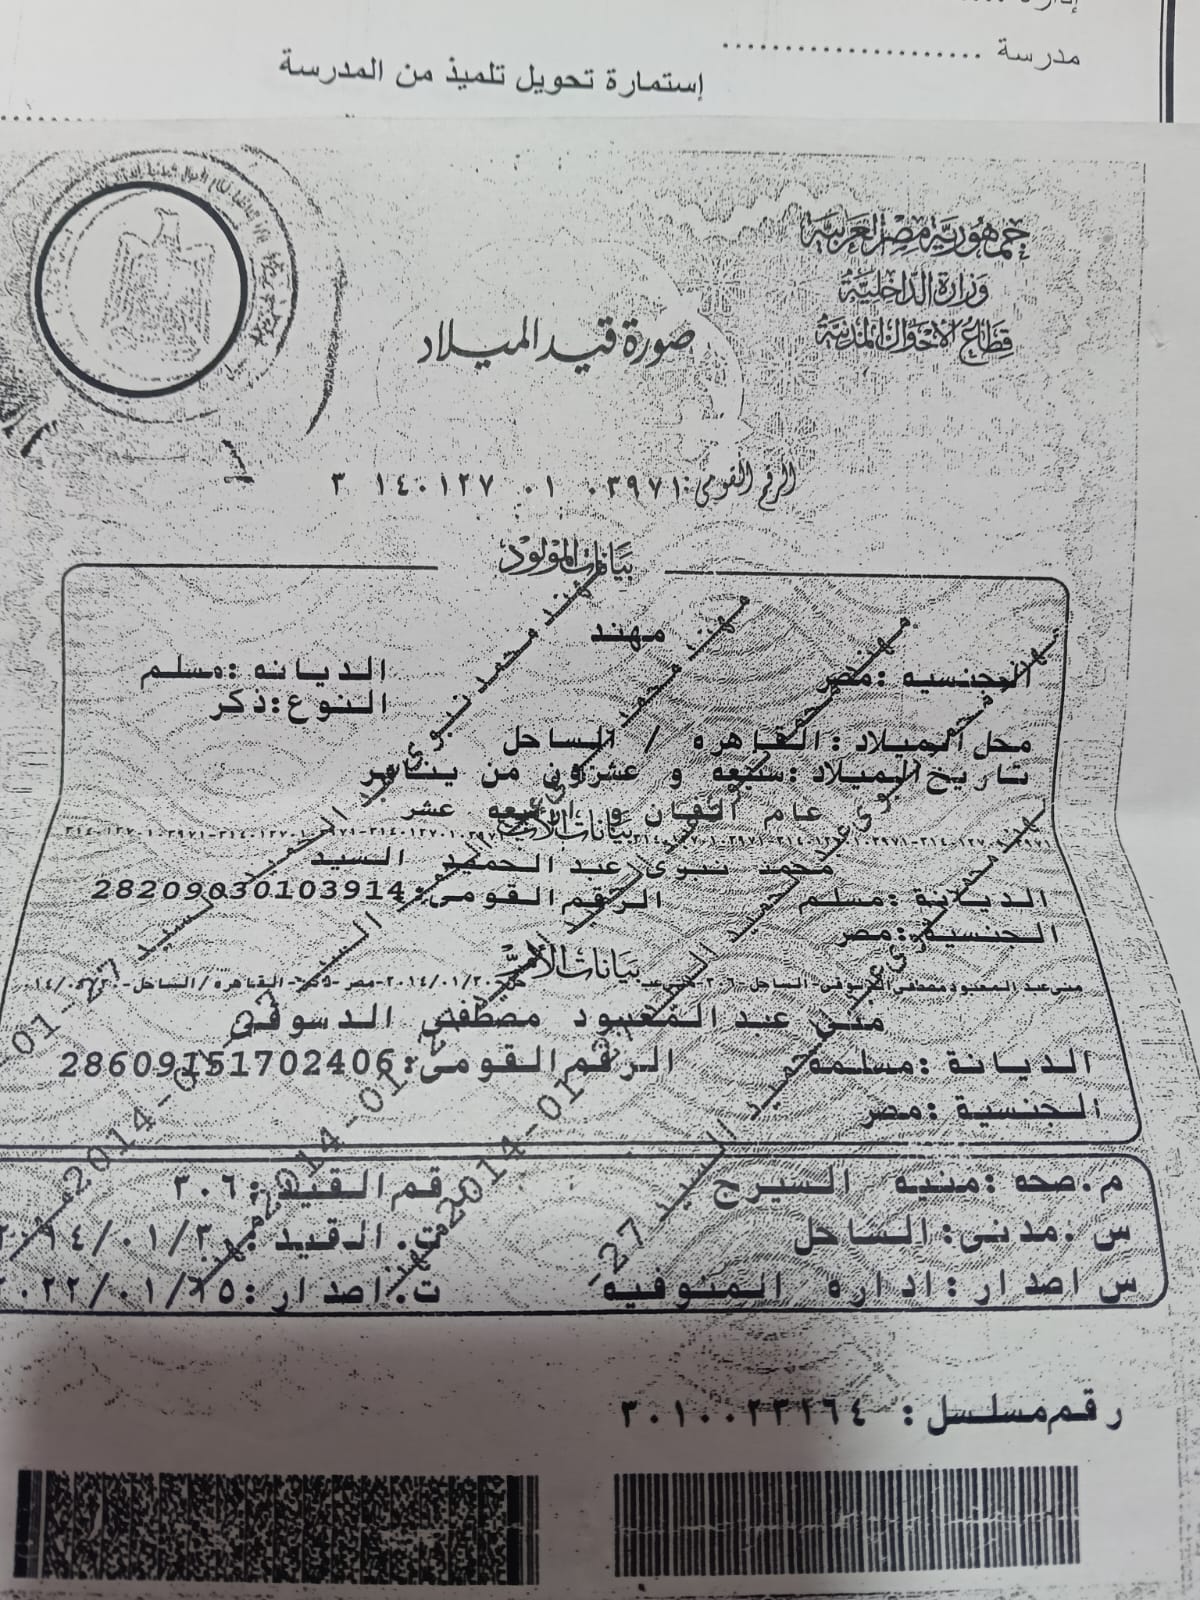 مدرسة .....................
إستمارة تحويل تلميذ من المدرسة
جمهورية مصر العربية
وزارة الداخلية
قطاع الأحوال المدنية
صورة قيد الميلاد
الرقم القومى: ٣ ١٤٠١٢٧ ٠١ ٠٣٩٧١
بيانات المولود
مهند
الجنسيه :مصر الديانه :مسلم
النوع :ذكر
محل الميلاد :القاهره / الساحل
تاريخ الميلاد :سبعه و عشرون من يناير
عام الفان و اربعه عشر
بيانات الأب
محمد نبوى عبد الحميد السيد
الديانة :مسلم الرقم القومى: 28209030103914
الجنسية :مصر
بيانات الأم
منى عبد المعبود مصطفى الدسوقى
الديانة :مسلمة الرقم القومى: 28609151702406
الجنسية :مصر
م.صحه :منيه السيرج رقم القيد :٣٠٦
س.مدنى :الساحل ت. القيد :
س اصدار :اداره المنوفيه ت.اصدار :
رقم مسلسل :